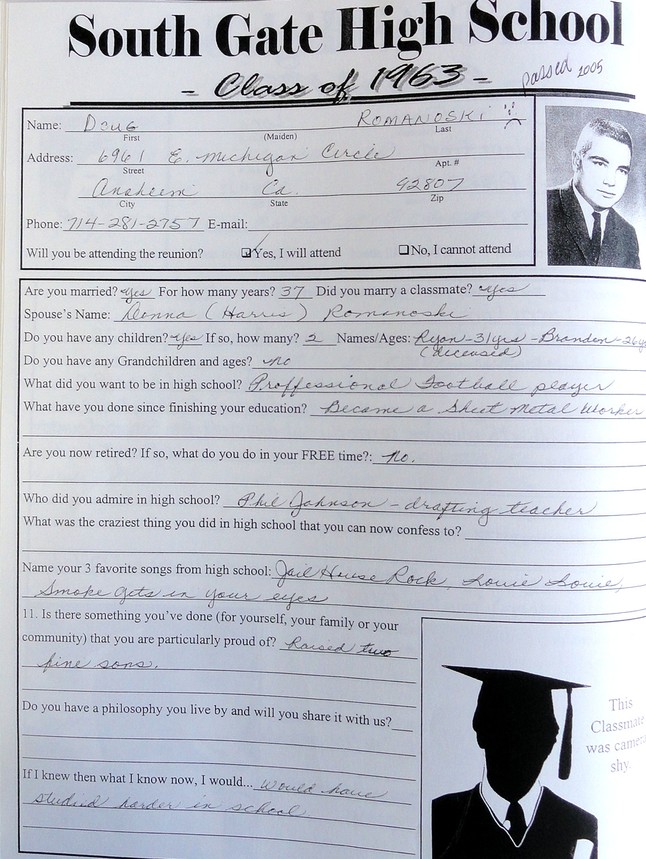 South Gate High School
- Class of 1963 -
passed 2005
Name: Doug ROMANOSKI
First (Maiden) Last
Address: 6961 E. Michigan Circle
Street Apt. #
Anaheim Ca. 92807
City State Zip
Phone: 714-281-2757 E-mail:
Will you be attending the reunion? Yes, I will attend No, I cannot attend
Are you married? Yes For how many years? 37 Did you marry a classmate? Yes
Spouse's Name: Donna (Harris) Romanoski
Do you have any children? Yes If so, how many? 2 Names/Ages: Ryon-31yrs - Branden-26
(deceased)
Do you have any Grandchildren and ages? no
What did you want to be in high school? Proffessional Football player
What have you done since finishing your education? Became a Sheet Metal Worker
Are you now retired? If so, what do you do in your FREE time?: no.
Who did you admire in high school? Phil Johnson - drafting teacher
What was the craziest thing you did in high school that you can now confess to?
Name your 3 favorite songs from high school: Jail House Rock, Louie Louie,
Smoke gets in your eyes
11. Is there something you've done (for yourself, your family or your
community) that you are particularly proud of? Raised two
fine sons.
Do you have a philosophy you live by and will you share it with us?
If I knew then what I know now, I would... would have
studied harder in school
This
Classmate
was camera
shy.